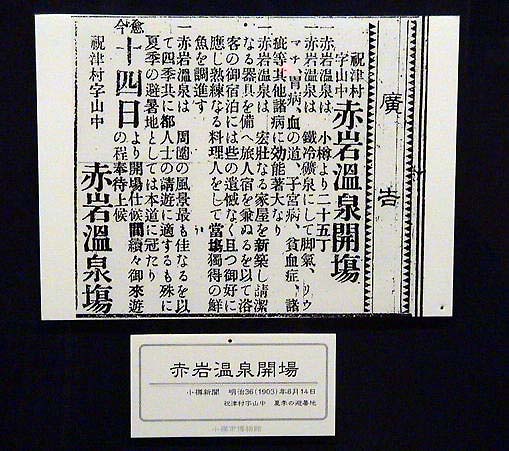 廣告
祝津村
字山中
赤岩溫泉開塲
一赤岩溫泉は 小樽より二十五丁
一赤岩溫泉は 鐵冷礦泉にして脚氣、リウ
マチ、胃病、血の道、子宮病、貧血症、諸
疵等其他諸病に効能著大なり
一赤岩溫泉は 宏壯なる家屋を新築し請潔
なる器具を備へ旅人宿を兼ぬるを以て浴
客の御宿泊には些の遺憾なく且つ御好に
應し熟練なる料理人をして當塲獨得の鮮
魚を調進す
一赤岩溫泉は 周圍の風景最も佳なるを以
て四季共に都人士の請遊に適するも殊に
夏季の避暑地としては本道に冠たり
愈
今
十四日
より開塲仕候間續々御來遊
の程奉待上候
祝津村字山中
赤岩溫泉塲
赤岩温泉開場
小樽新聞 明治36(1903)年8月14日
祝津村字山中 夏季の避暑地
小樽市博物館